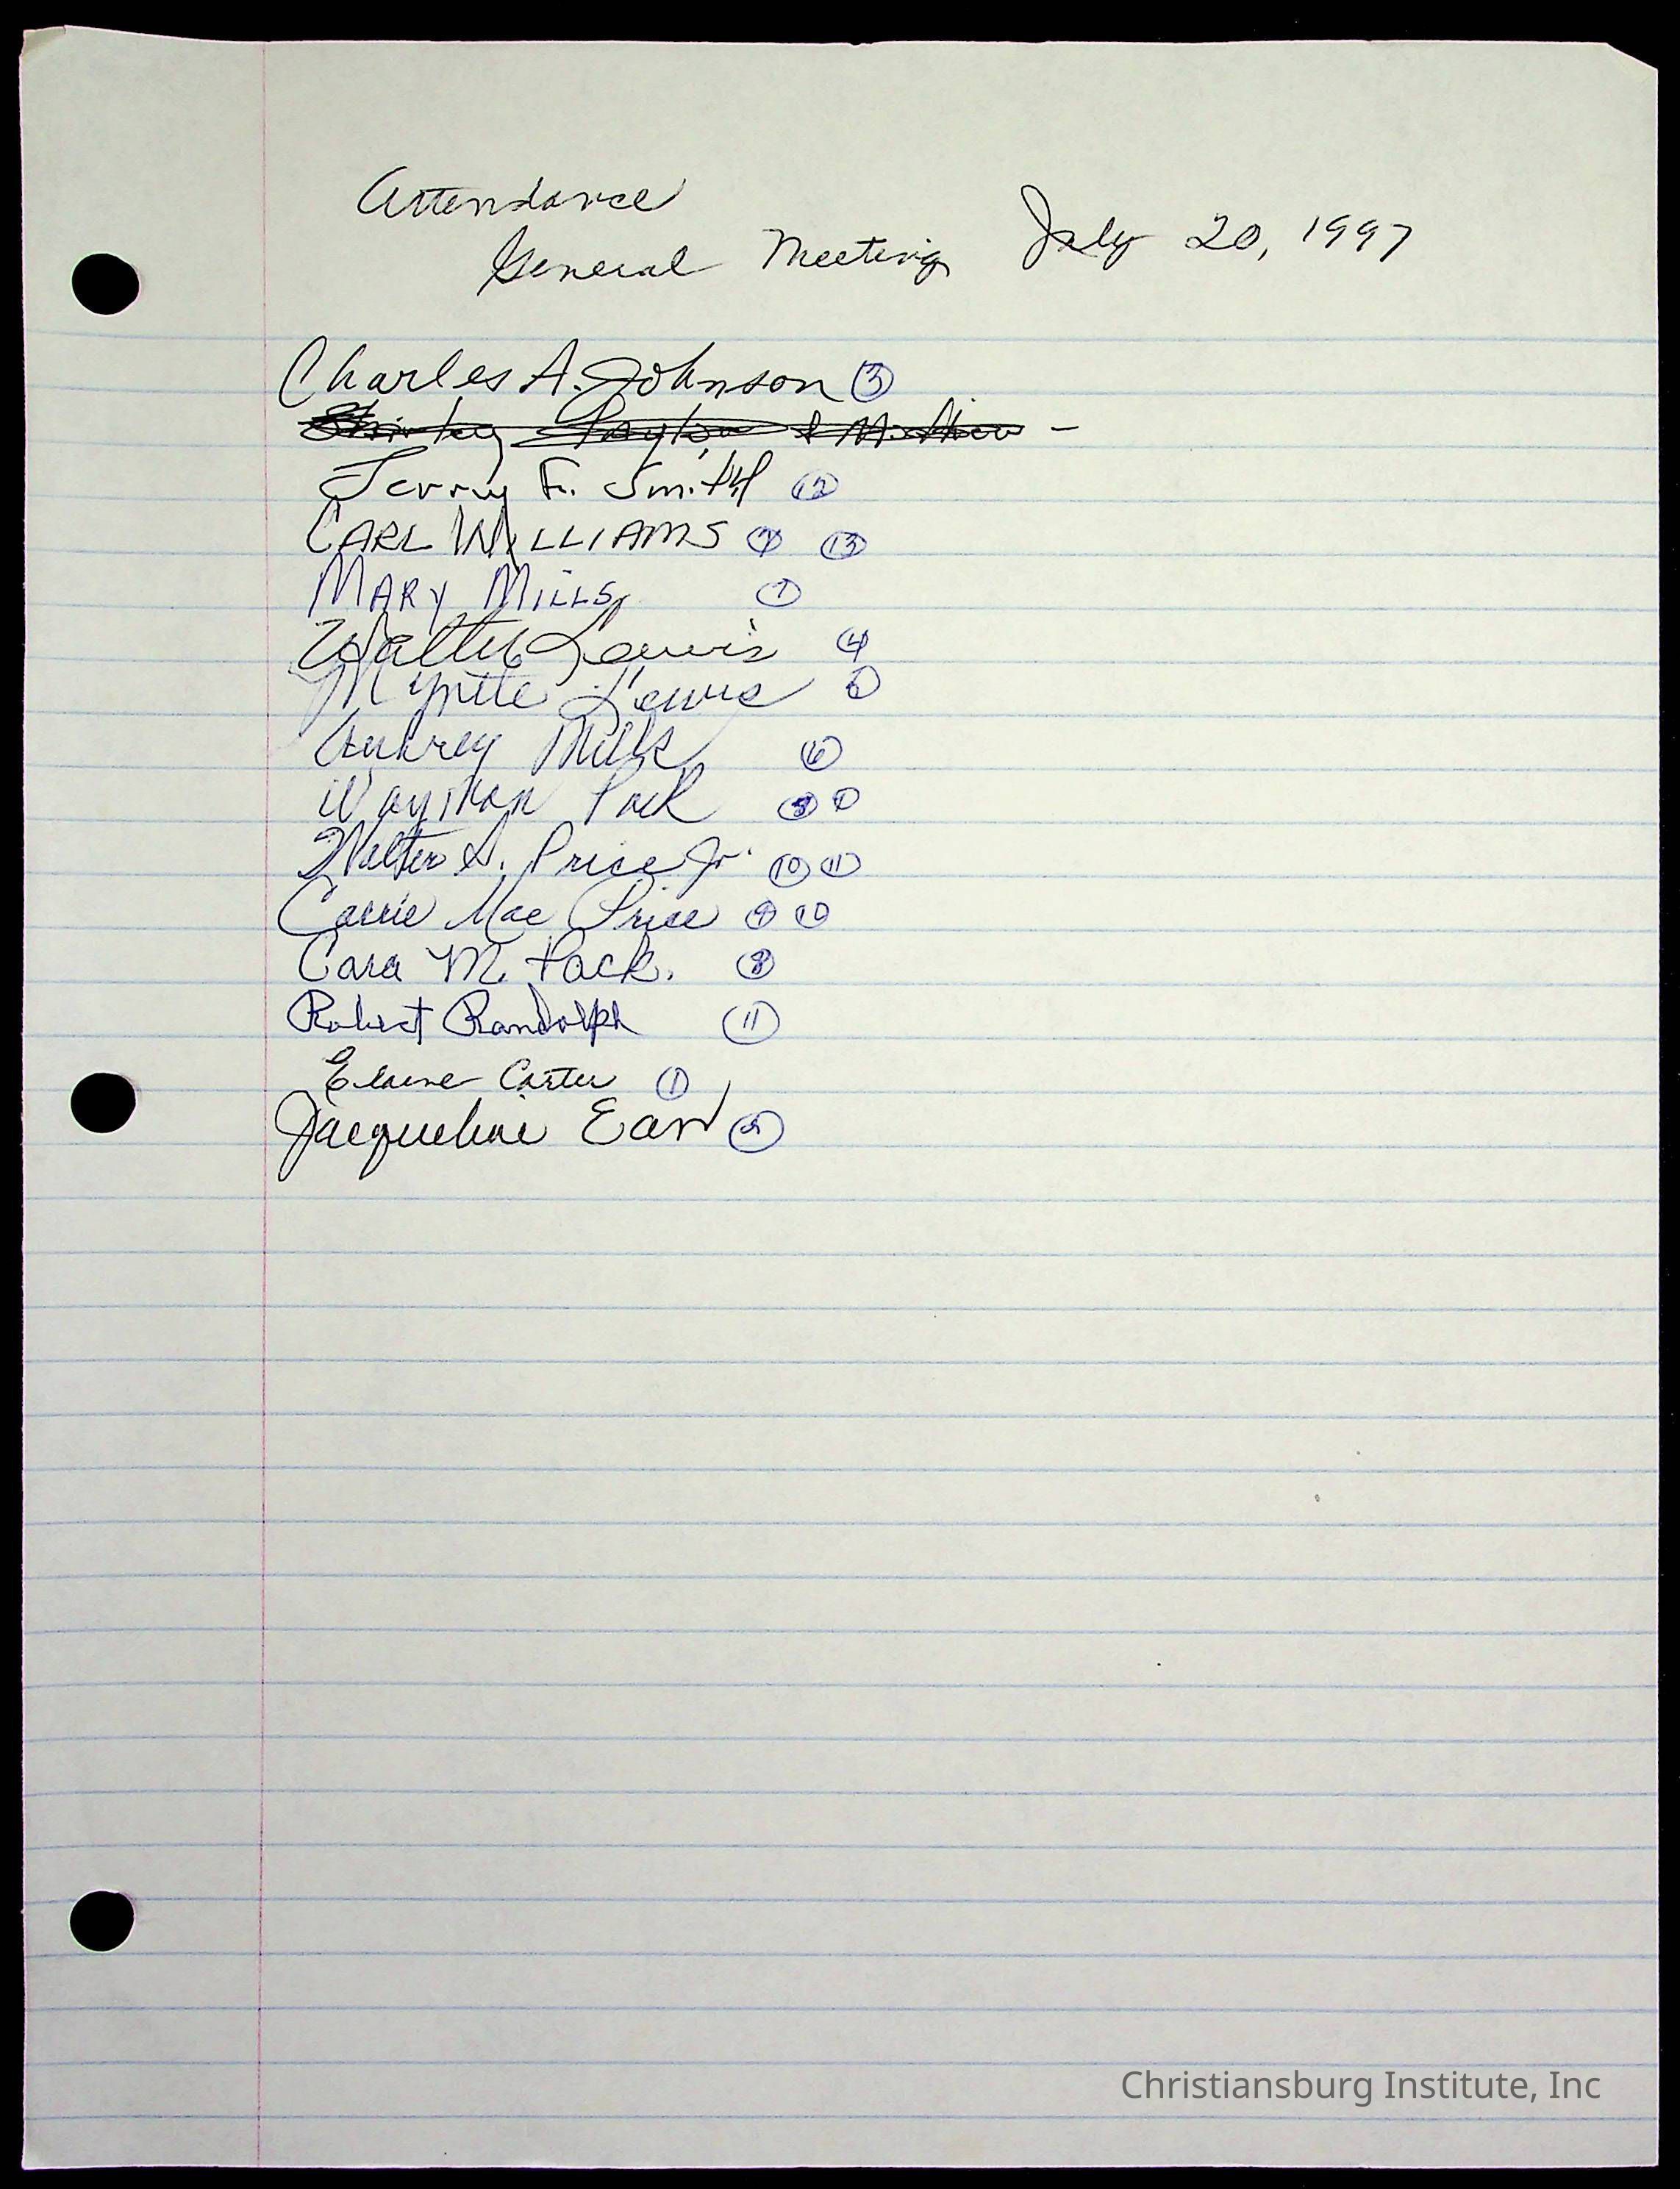 Attendance
General Meeting July 20, 1997
Charles A. Johnson ③
Shirley &
Jerry F. Smith ⑫
CARL WILLIAMS ⑬
MARY MILLS ⑦
Walter Lewis ④
Lewis
Aubrey Mills ⑥
Wayman Pack
Walter S. Price Jr. ⑩ ⑪
Carrie Mae Price ⑨ ⑩
Cara M. Pack. ⑧
Robert Randolph ⑪
Elaine Carter ①
Jacqueline Eaves
Christiansburg Institute, Inc